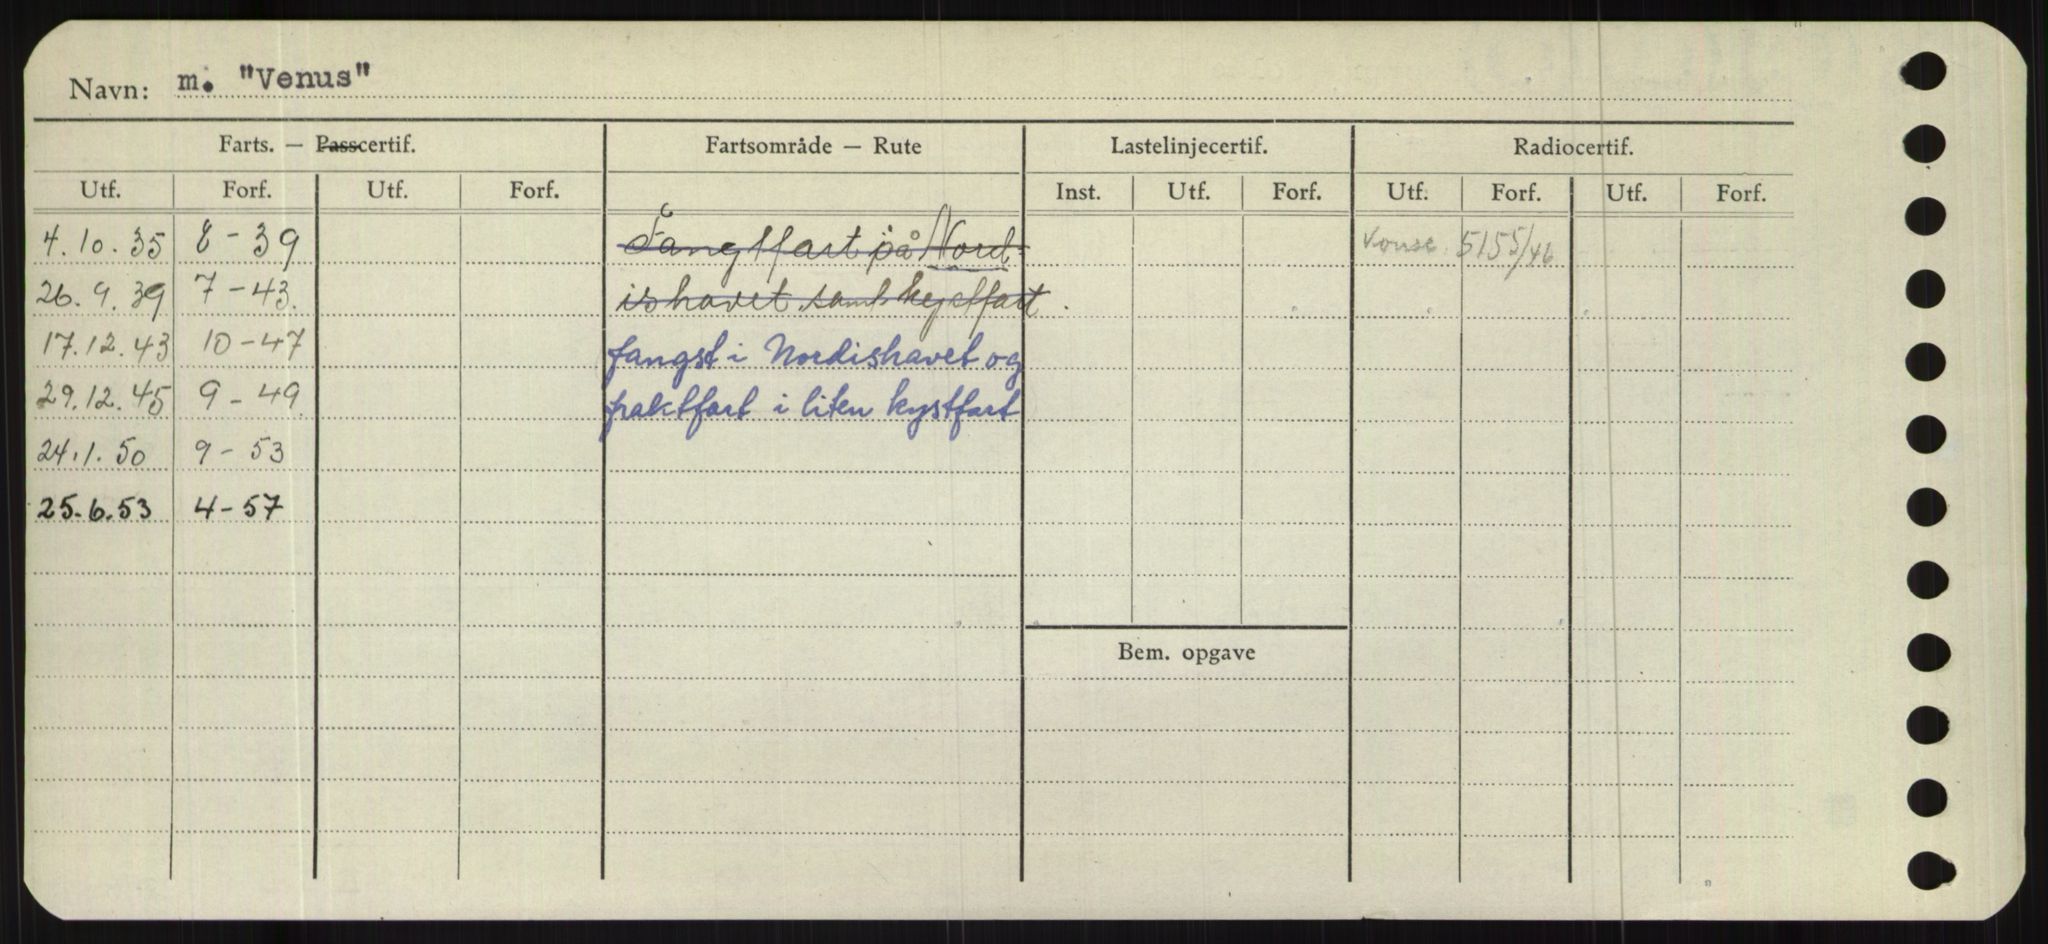 Navn: m. "Venus"
Farts. — Passcertif. Fartsområde — Rute Lastelinjecertif. Radiocertif.
Utf. Forf. Utf. Forf. Inst. Utf. Forf. Utf. Forf. Utf. Forf.
4.10.35 8-39 Fangstfart på Nord- 5155/46
26.9.39 7-43. ishavet samt kystfart.
17.12.43 10-47 fangst i Nordishavet og
29.12.45 9-49 fraktfart i liten kystfart
24.1.50 9-53
25.6.53 4-57
Bem. opgave